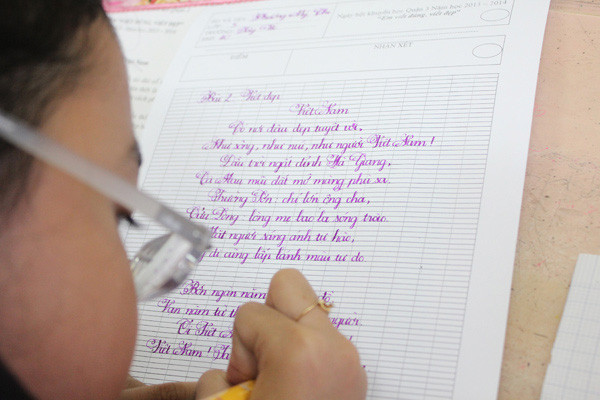 Ngày hội khuyến học Quận 3 Năm học 2013 - 2014
"Em viết đúng, viết đẹp"
ĐIỂM
NHẬN XÉT
Bài 2 Viết đẹp
Việt Nam
Có nơi đâu đẹp tuyệt vời,
Như sông, như núi, như người Việt Nam!
Đầu trời ngất đỉnh Hà Giang,
Cà Mau mũi đất mỡ màng phù sa.
Trường Sơn: chí lớn ông cha,
Cửu Long: lòng mẹ bao la sóng trào.
người sáng ánh tự hào,
đi cũng lấp lánh màu tự do.
Bốn ngàn năm
Vạn năm từ người.
Ơi Việt
Việt Nam!